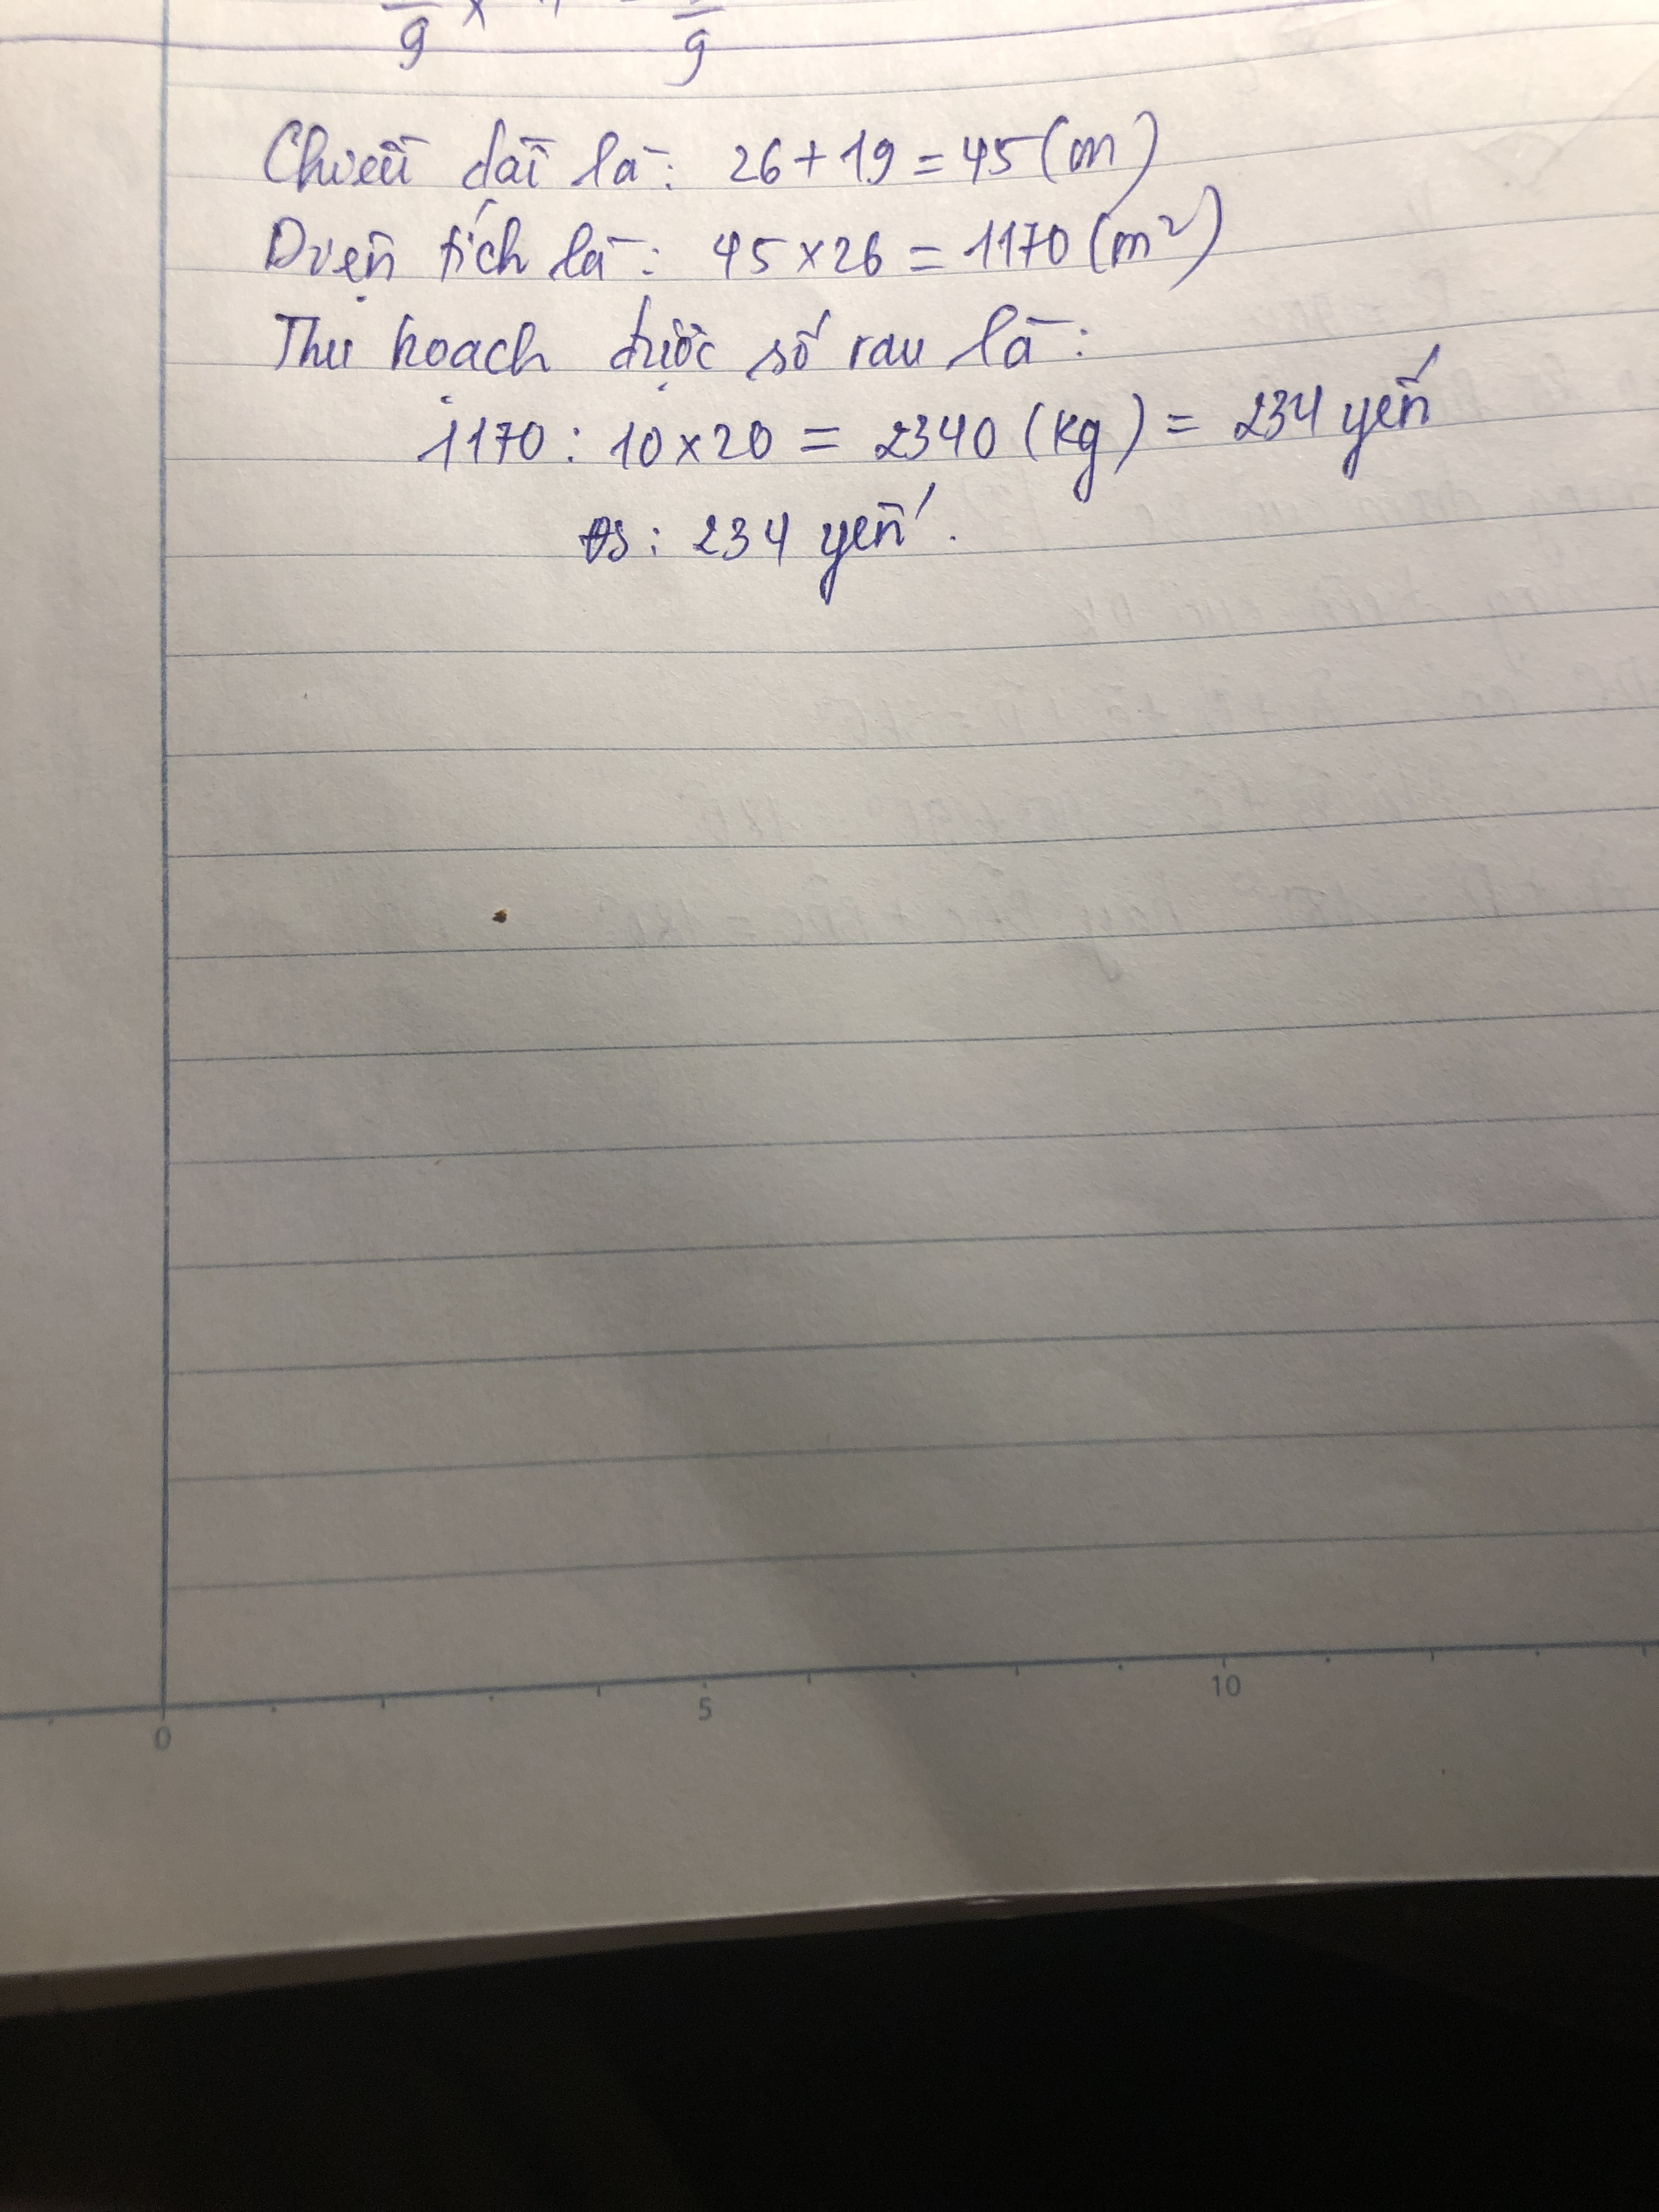 9 x 9
Chiều dài là: 26 + 19 = 45 (m)
Diện tích là: 45 x 26 = 1170 (m²)
Thu hoạch được số rau là:
1170 : 10 x 20 = 2340 (kg) = 234 yến
ĐS: 234 yến.
0 5 10